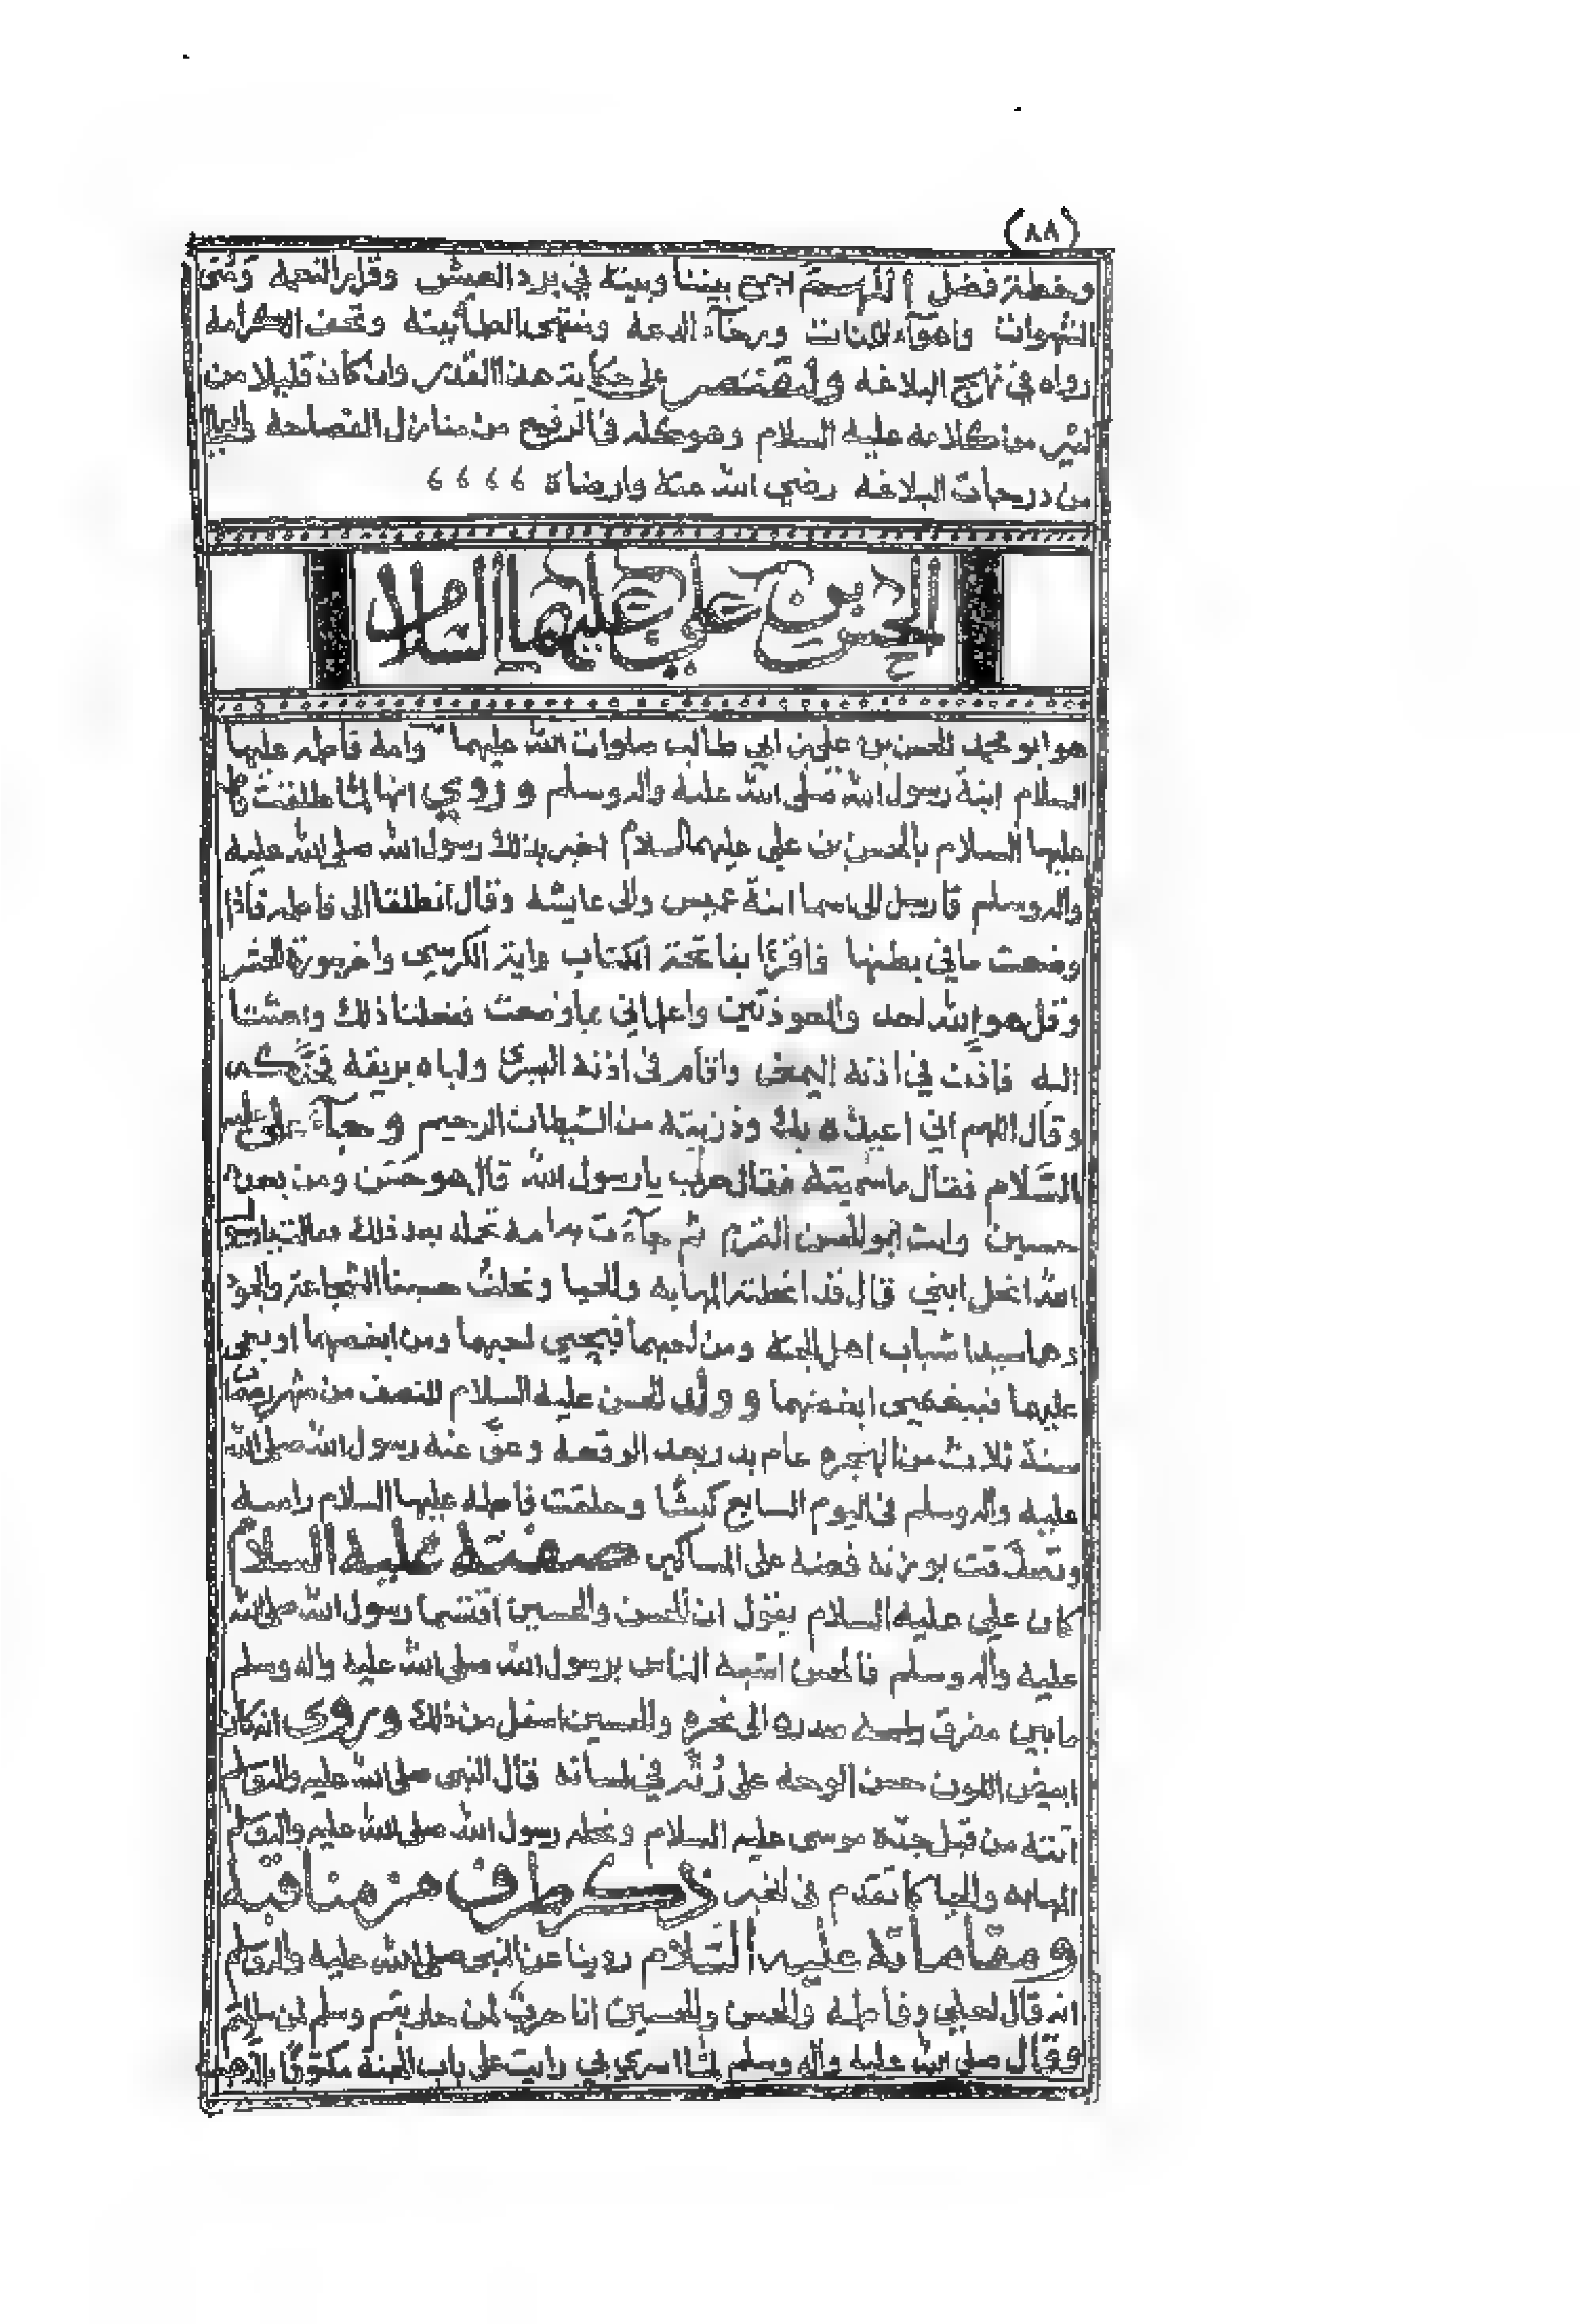 (٨٨)
وخطة فضل اللهم اجمع بيننا وبينه في برد العيش وقرار النعمة ومنى
الشهوات واهواء اللذات ورخاء الدعة ومنتهى الطمأنينة وتحف الكرامة
رواه في نهج البلاغه ولنقتصر على حكاية هذا القدر وان كان قليلا من
كثير من كلامه عليه السلام وهو كله في الرفيع من منازل الفصاحة
من درجات البلاغه رضي الله عنه وارضاه
الحسن بن علي عليهما السلام
هو ابو محمد الحسن بن علي بن ابي طالب صلوات الله عليهما وامه فاطمه عليها
السلام ابنة رسول الله صلى الله عليه واله وسلم وروي انها لما طلقت
عليها السلام بالحسن بن علي عليهما السلام اخبر بذلك رسول الله صلى الله عليه
واله وسلم فارسل الى اسما ابنة عميس والى عايشه وقال انطلقا الى فاطمه فاذا
وضعت مافي بطنها فاقرءا بفاتحة الكتاب واية الكرسي واخر سورة الحشر
وقل هو الله احد والمعوذتين واعلماني بما وضعت ففعلتا ذلك وبعثتا
اليه فاذن في اذنه اليمنى واقام في اذنه اليسرى ولباه بريقه
وقال اللهم اني اعيذه بك وذريته من الشيطان الرجيم وجاء علي عليه
السلام فقال ما سميته فقال حرب يا رسول الله قال هو حسن ومن بعده
حسين وانت ابو الحسن القرم ثم جاءت به امه تحمله بعد ذلك
الله انحل ابني قال قد انحلته المهابه والحيا ونحلت حسينا الشجاعة والجود
وهما سيدا شباب اهل الجنة ومن احبهما فبحبي احبهما ومن ابغضهما او بغى
عليهما فببغضي ابغضهما وولد الحسن عليه السلام للنصف من شهر رمضان
سنة ثلاث من الهجره عام بدر بعد الوقعه وعق عنه رسول الله صلى الله
عليه واله وسلم في اليوم السابع كبشا وحلقت فاطمه عليها السلام راسه
وتصدقت بوزنه فضة على المساكين صفته عليه السلام
كان علي عليه السلام يقول ان الحسن والحسين اقتسما رسول الله صلى الله
عليه واله وسلم فالحسن اشبه الناس برسول الله صلى الله عليه واله وسلم
ما بين مفرق راسه صدره الى نحره والحسين اسفل من ذلك وروى انه كان
ابيض اللون حسن الوجه على رُتَّة في لسانه قال النبي صلى الله عليه واله وسلم
اتته من قبل موسى عليه السلام ونحله رسول الله صلى الله عليه واله وسلم
المهابه والحيا كما تقدم في الخبر ذكر طرف من مناقبه
ومقاماته عليه السلام روينا عن النبي صلى الله عليه واله وسلم
انه قال لعلي وفاطمه والحسن والحسين انا حرب لمن حاربتم وسلم لمن سالمتم
وقال صلى الله عليه واله وسلم لما اسري بي رايت على باب الجنة مكتوبا بالذهب